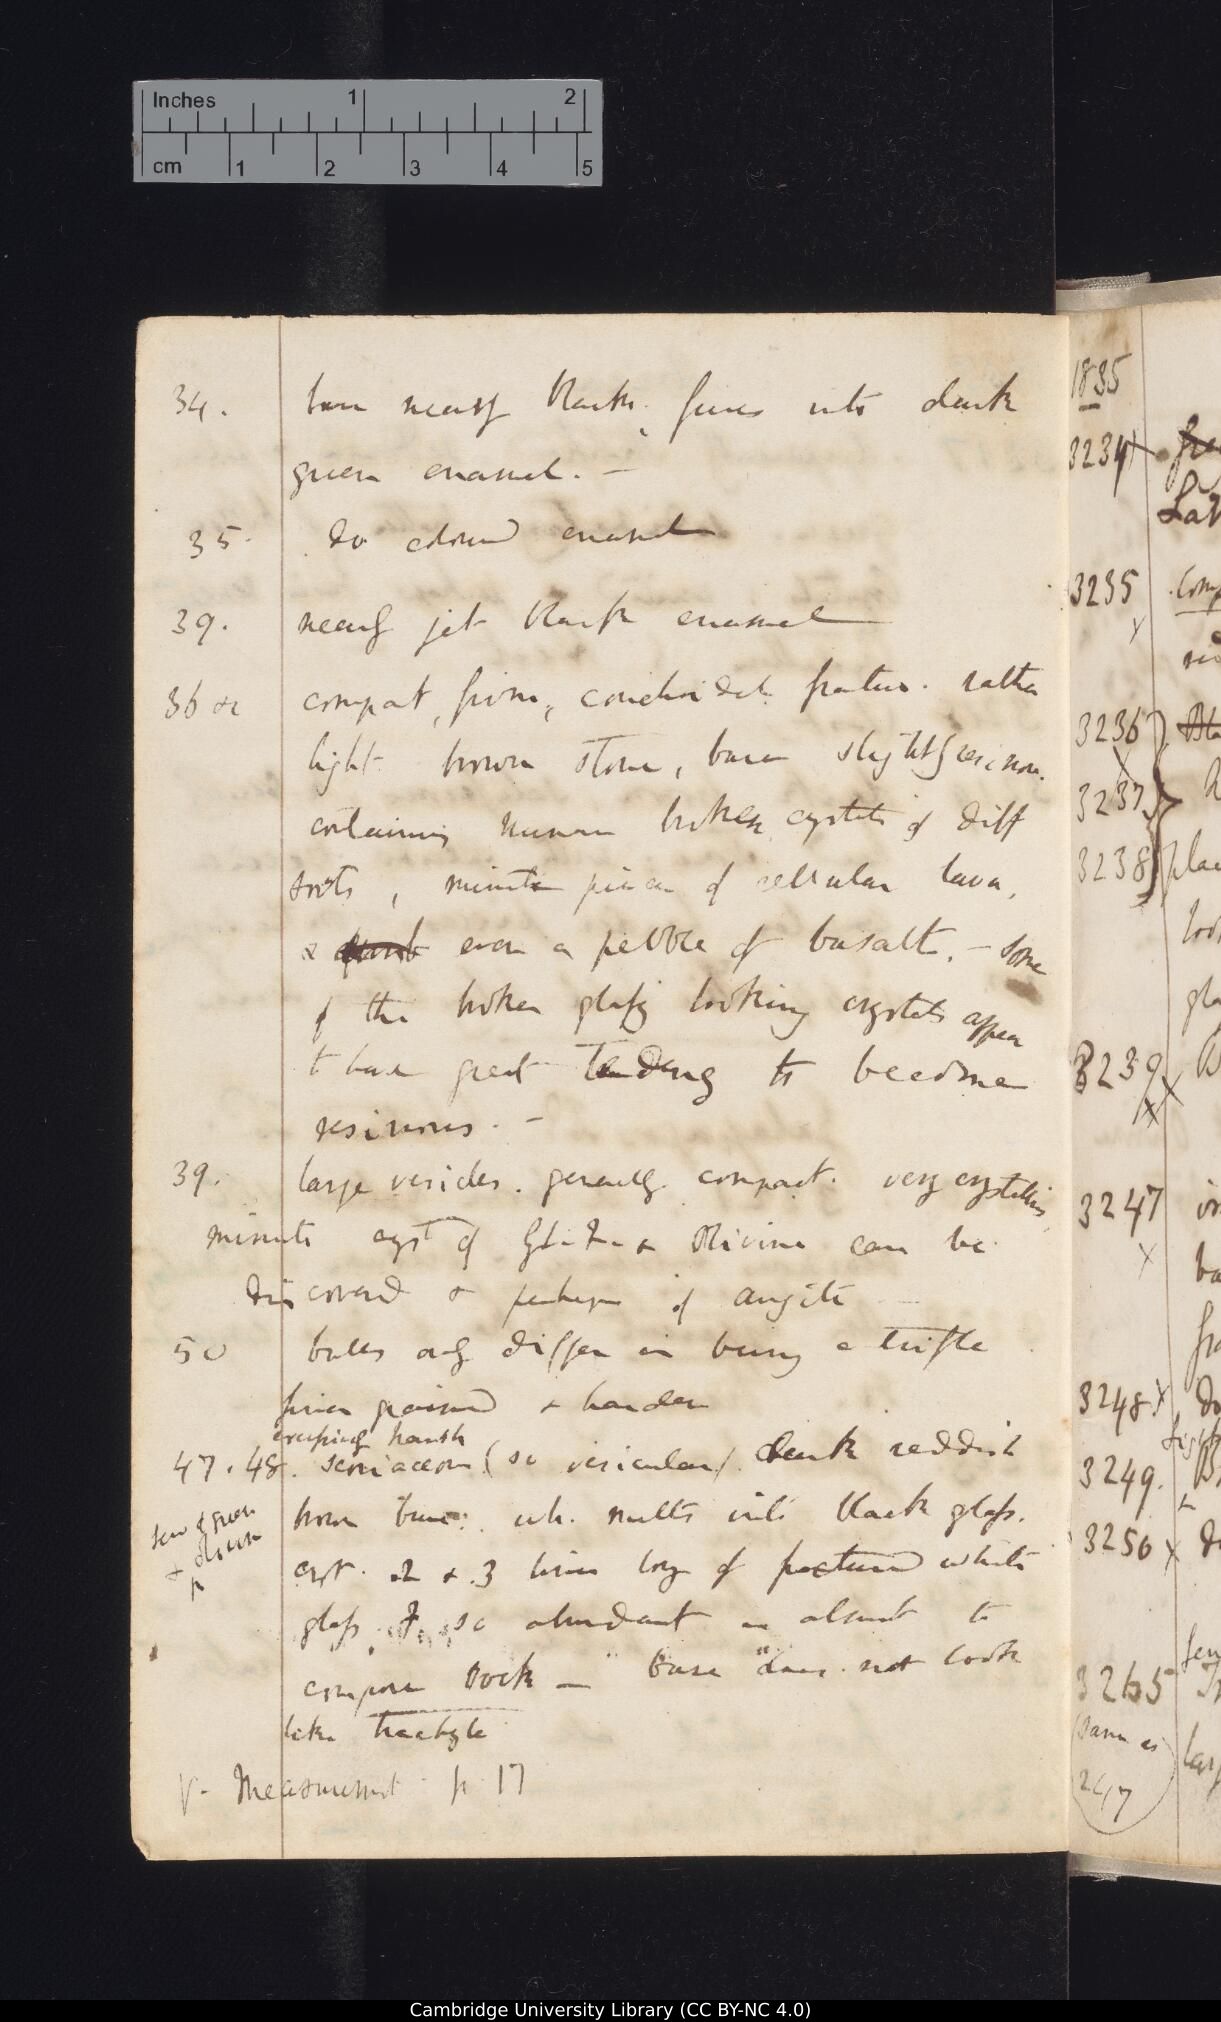 Inches 1 2
cm 1 2 3 4 5
34. base nearly black. fuses into dark
green enamel. —
35. Do colored enamel
39. nearly jet black enamel
36 &c compact, firm, conchoidal fracture. rather
light brown stone, base slightly resinous.
containing numerous broken crystals of diff
sorts, minute pieces of cellular lava,
& even a pebble of basalt. — some
of the broken glassy looking crystals appear
to have great tendency to become
resinous. —
39. large vesicles. generally compact. very crystalline
minute cryst of & Olivine can be
discovered & perhaps of augite
50 balls only differ in being a trifle
finer grained & harder
harsh
47. 48. scoriaceous (so vesicular) dark reddish
brown base: wh. melts into black glass.
few of green
& olivine
p
cryst. .2 & .3 lines long of fractured white
glass F. so abundant as almost to
compose rock — base does not look
like trachyte
V. Measurement p 17
1835
3234
Lav
3235 Comp
3236
3237
3238
3239
3247
3248
3249.
3250
3265
(Same as
247
Cambridge University Library (CC BY-NC 4.0)